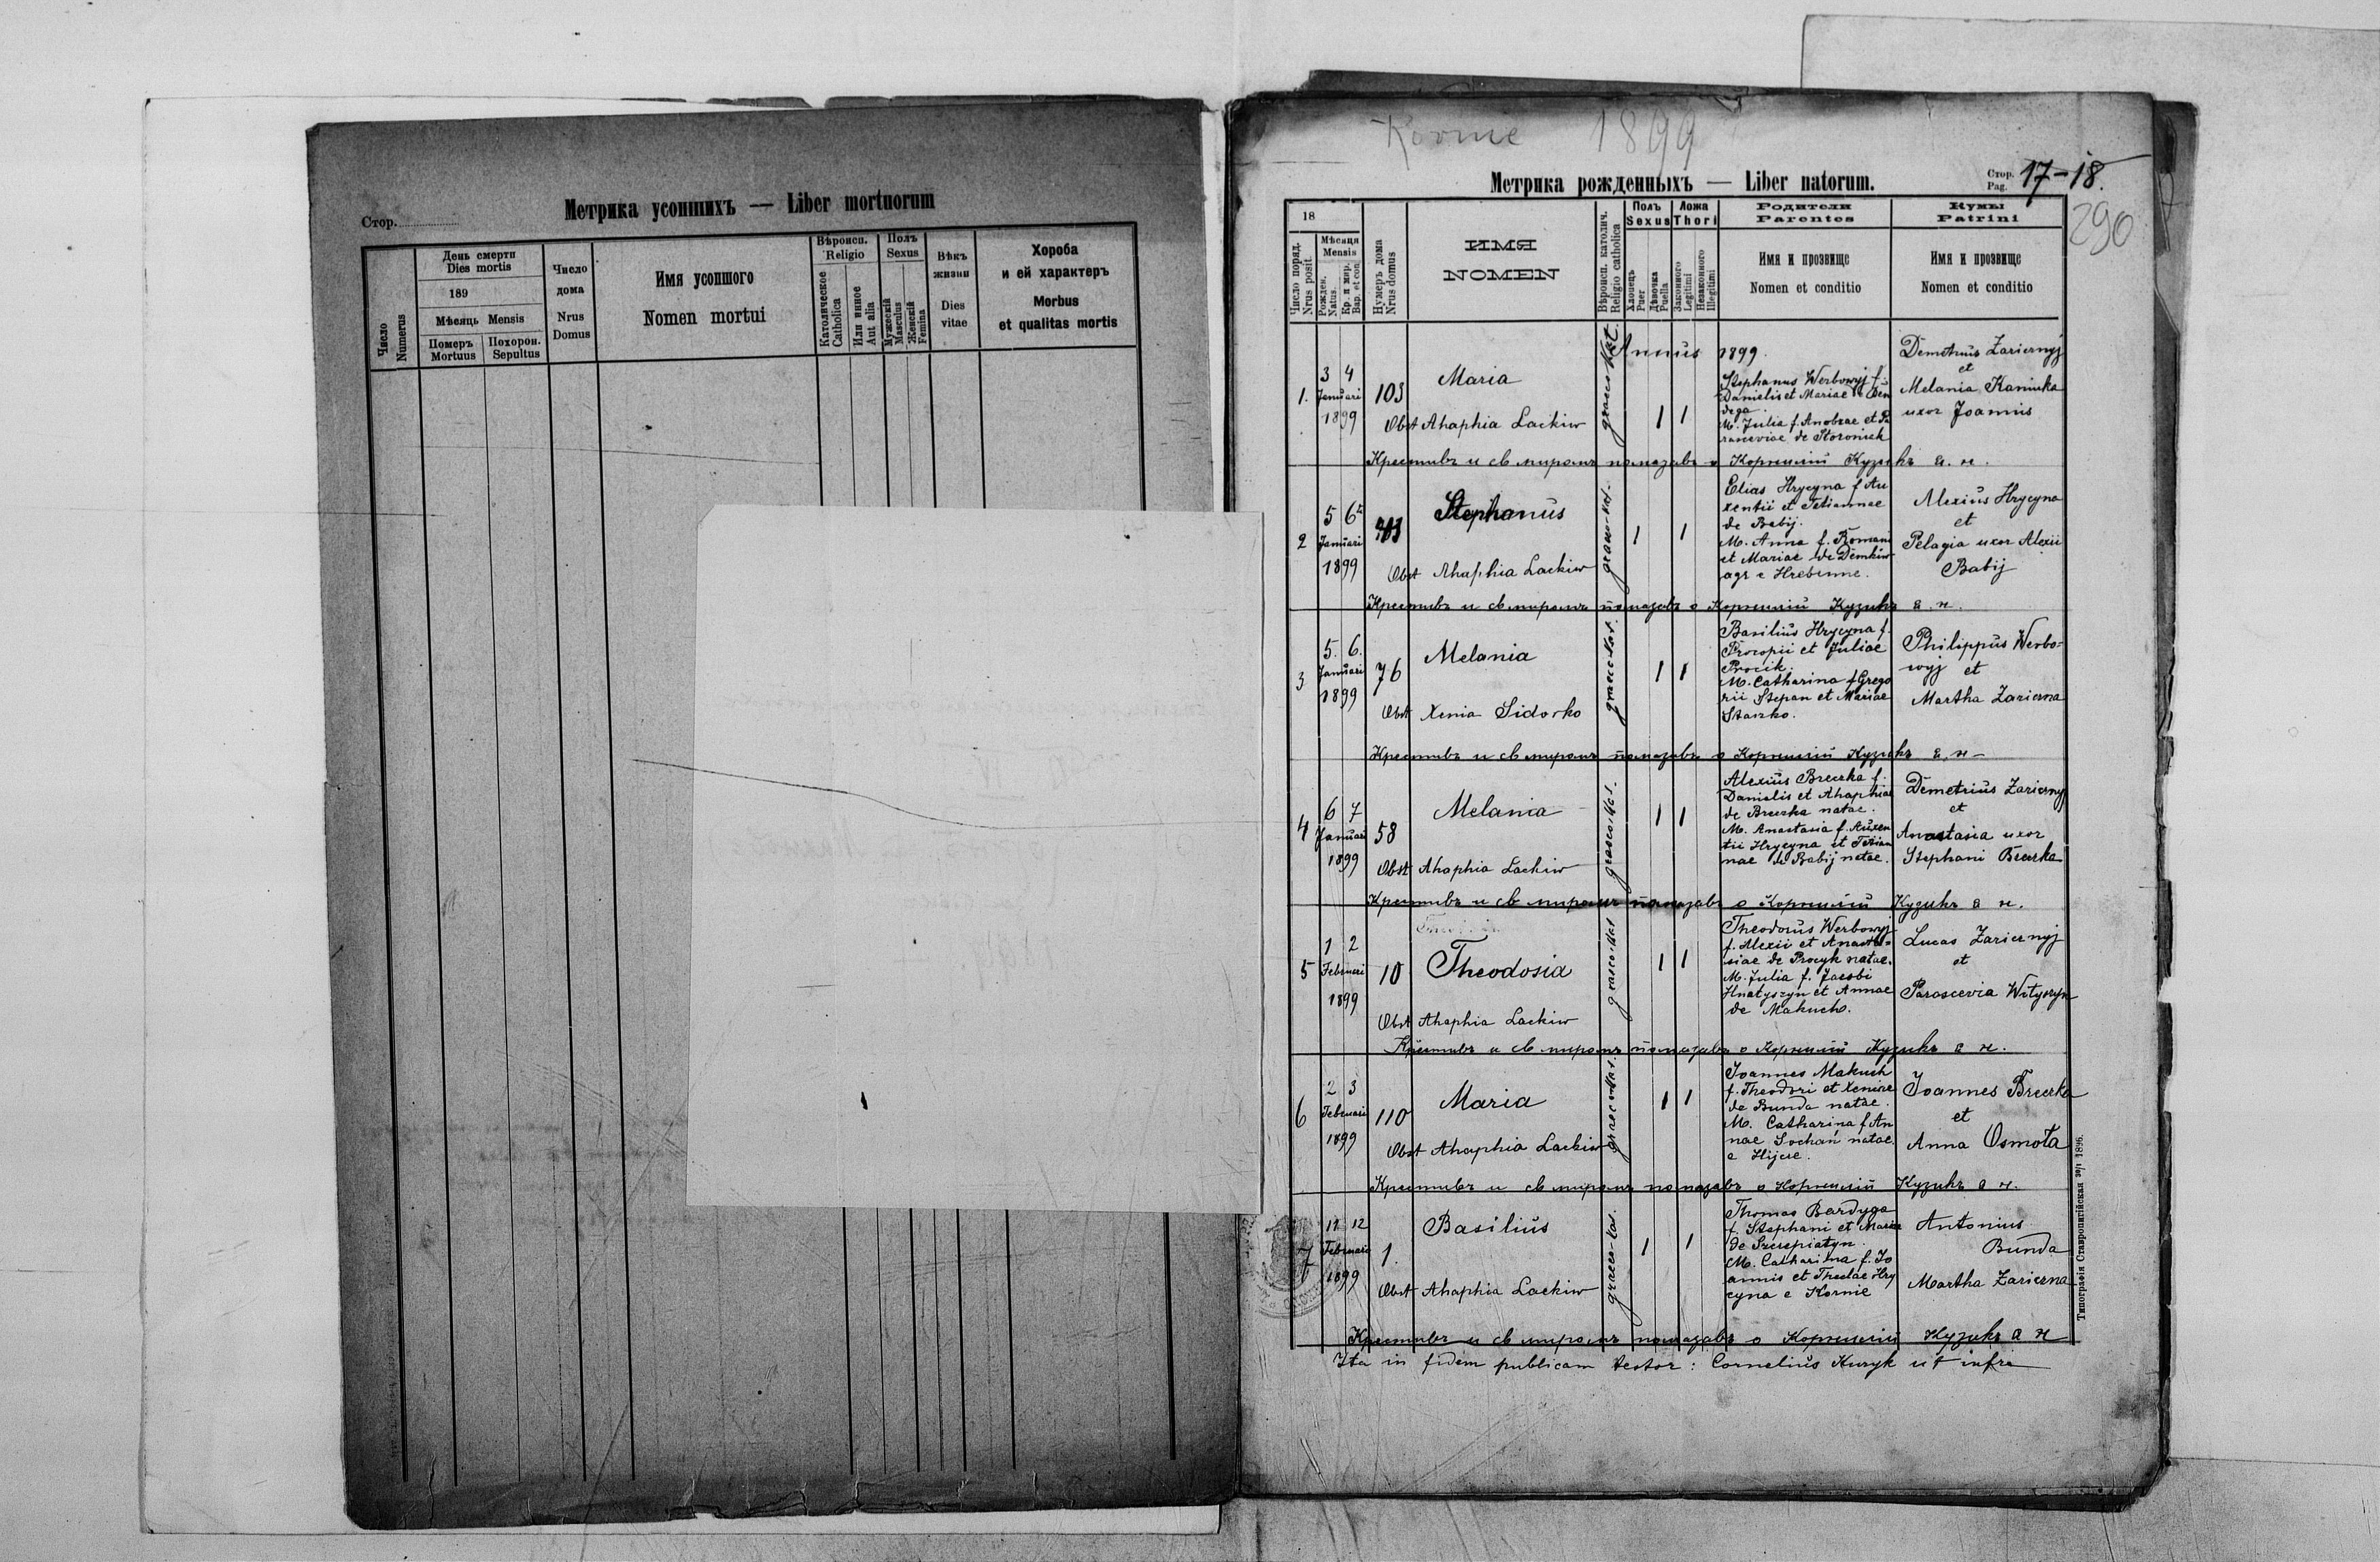 Стор.
Метрика усопшихъ — Liber mortuorum
Число
Numerus
День смерти
Dies mortis
189
Мѣсяць Mensis
Померъ
Mortuus
Похорон.
Sepultus
Число
дома
Nrus
Domus
Имя усопшого
Nomen mortui
Вѣроисп.
Religio
Католическое
Catholica
Или инное
Aut alia
Полъ
Sexus
Мужескій
Masculus
Женскій
Femina
Вѣкъ
жизни
Dies
vitae
Хороба
и ей характеръ
Morbus
et qualitas mortis
Kornie 1899
Метрика рожденныхъ — Liber natorum.
Стор.
Pag. 17-18.
290
18
Число поряд.
Nrus posit.
Мѣсяця
Mensis
Рожден.
Natus.
Кр. и мир.
Bap. et con.
Нумеръ дома
Nrus domus
ИМЯ
NOMEN
Вѣроисп. католич.
Religio catholica
Полъ
Sexus
Хлопець
Puer
Дѣвочка
Puella
Ложа
Thori
Законного
Legitimi
Незаконного
Illegitimi
Родители
Parentes
Имя и прозвище
Nomen et conditio
Кумы
Patrini
Имя и прозвище
Nomen et conditio
Annus 1899.
1. 3 4
Januari
1899
103
Maria
Obst Ahaphia Lackiw
graeco-kat.
1 1
Stephanus Werbowyj f.
Danielis et Mariae
M. Julia f. Andreae et Pa
rasceviae de Storoniak
Demetrius Zariernyj
et
Melania Kaminka
uxor Joannis
Крестивъ и св мѵромъ помазавъ о Корнилій Кузыкъ в. н.
2 5 6
Januari
1899
Stephanus
Obst Ahaphia Lackiw
graeco-kat.
1 1
Elias Hrycyna f Au
xentii et Tetiannae
de Babij.
M. Anna f. Romani
et Mariae de Demkiw
agr e Hrebenne.
Alexius Hrycyna
et
Pelagia uxor Alexii
Babij
Крестивъ и св мѵромъ помазавъ о Корнилій Кузыкъ в. н.
3 5. 6.
Januari
1899
76
Melania
Obst Xenia Sidorko
graeco-kat.
1 1
Basilius Hrycyna f.
Procopii et Juliae
Procik.
M. Catharina f Grego
rii Stepan et Mariae
Staszko.
Philippus Werbo=
wyj et
Martha Zarierna
Крестивъ и св мѵромъ помазавъ о Корнилій Кузыкъ в. н
4 6 7
Januari
1899
58
Melania
Obst Ahaphia Lackiw
graeco-kat.
1 1
Alexius Breczka f.
Danielis et Ahaphiae
de Breczka natae.
M. Anastasia f. Auxen
tii Hrycyna et Tetian
nae de Babij natae.
Demetrius Zariernyj
et
Anastasia uxor
Stephani Breczka
Крестивъ и св мѵромъ помазавъ о Корнилій Кузыкъ в н.
5 1 2
Februari
1899
10
Theodosia
Obst Ahaphia Lackiw
graeco-kat
1 1
Theodorus Werbowyj
f. Alexii et Anasta=
siae de Procyk natae.
M. Julia f. Jacobi
Hnatyszyn et Annae
de Makuch.
Lucas Zariernyj
et
Parascevia Wityszyn
Крестивъ и св мѵромъ помазавъ о Корнилій Кузыкъ в н.
6 2 3
Februari
1899
110
Maria
Obst Ahaphia Lackiw
graeco-kat.
1 1
Joannes Makuch
f. Theodori et Xeniae
de Bunda natae.
M. Catharina f An
nae Sochań natae.
e Hijcze.
Joannes Breczka
et
Anna Osmota
Крестивъ и св мѵромъ помазавъ о Корнилій Кузыкъ в н.
7 11 12
Februari
1899
1.
Basilius
Obst Ahaphia Lackiw
graeco-kat.
1 1
Thomas Bardyga
f. Stephani et Mariae
de Szczepiatyn.
M. Catharina f. Jo
annis et Theclae Hry
cyna e Kornie
Antonius
Bunda
Martha Zarierna
Крестивъ и св мѵромъ помазавъ о Корнилій Кузыкъ в н
Ita in fidem publicam testor: Cornelius Kuzyk ut infra
Типографія Ставропигійская 1896.